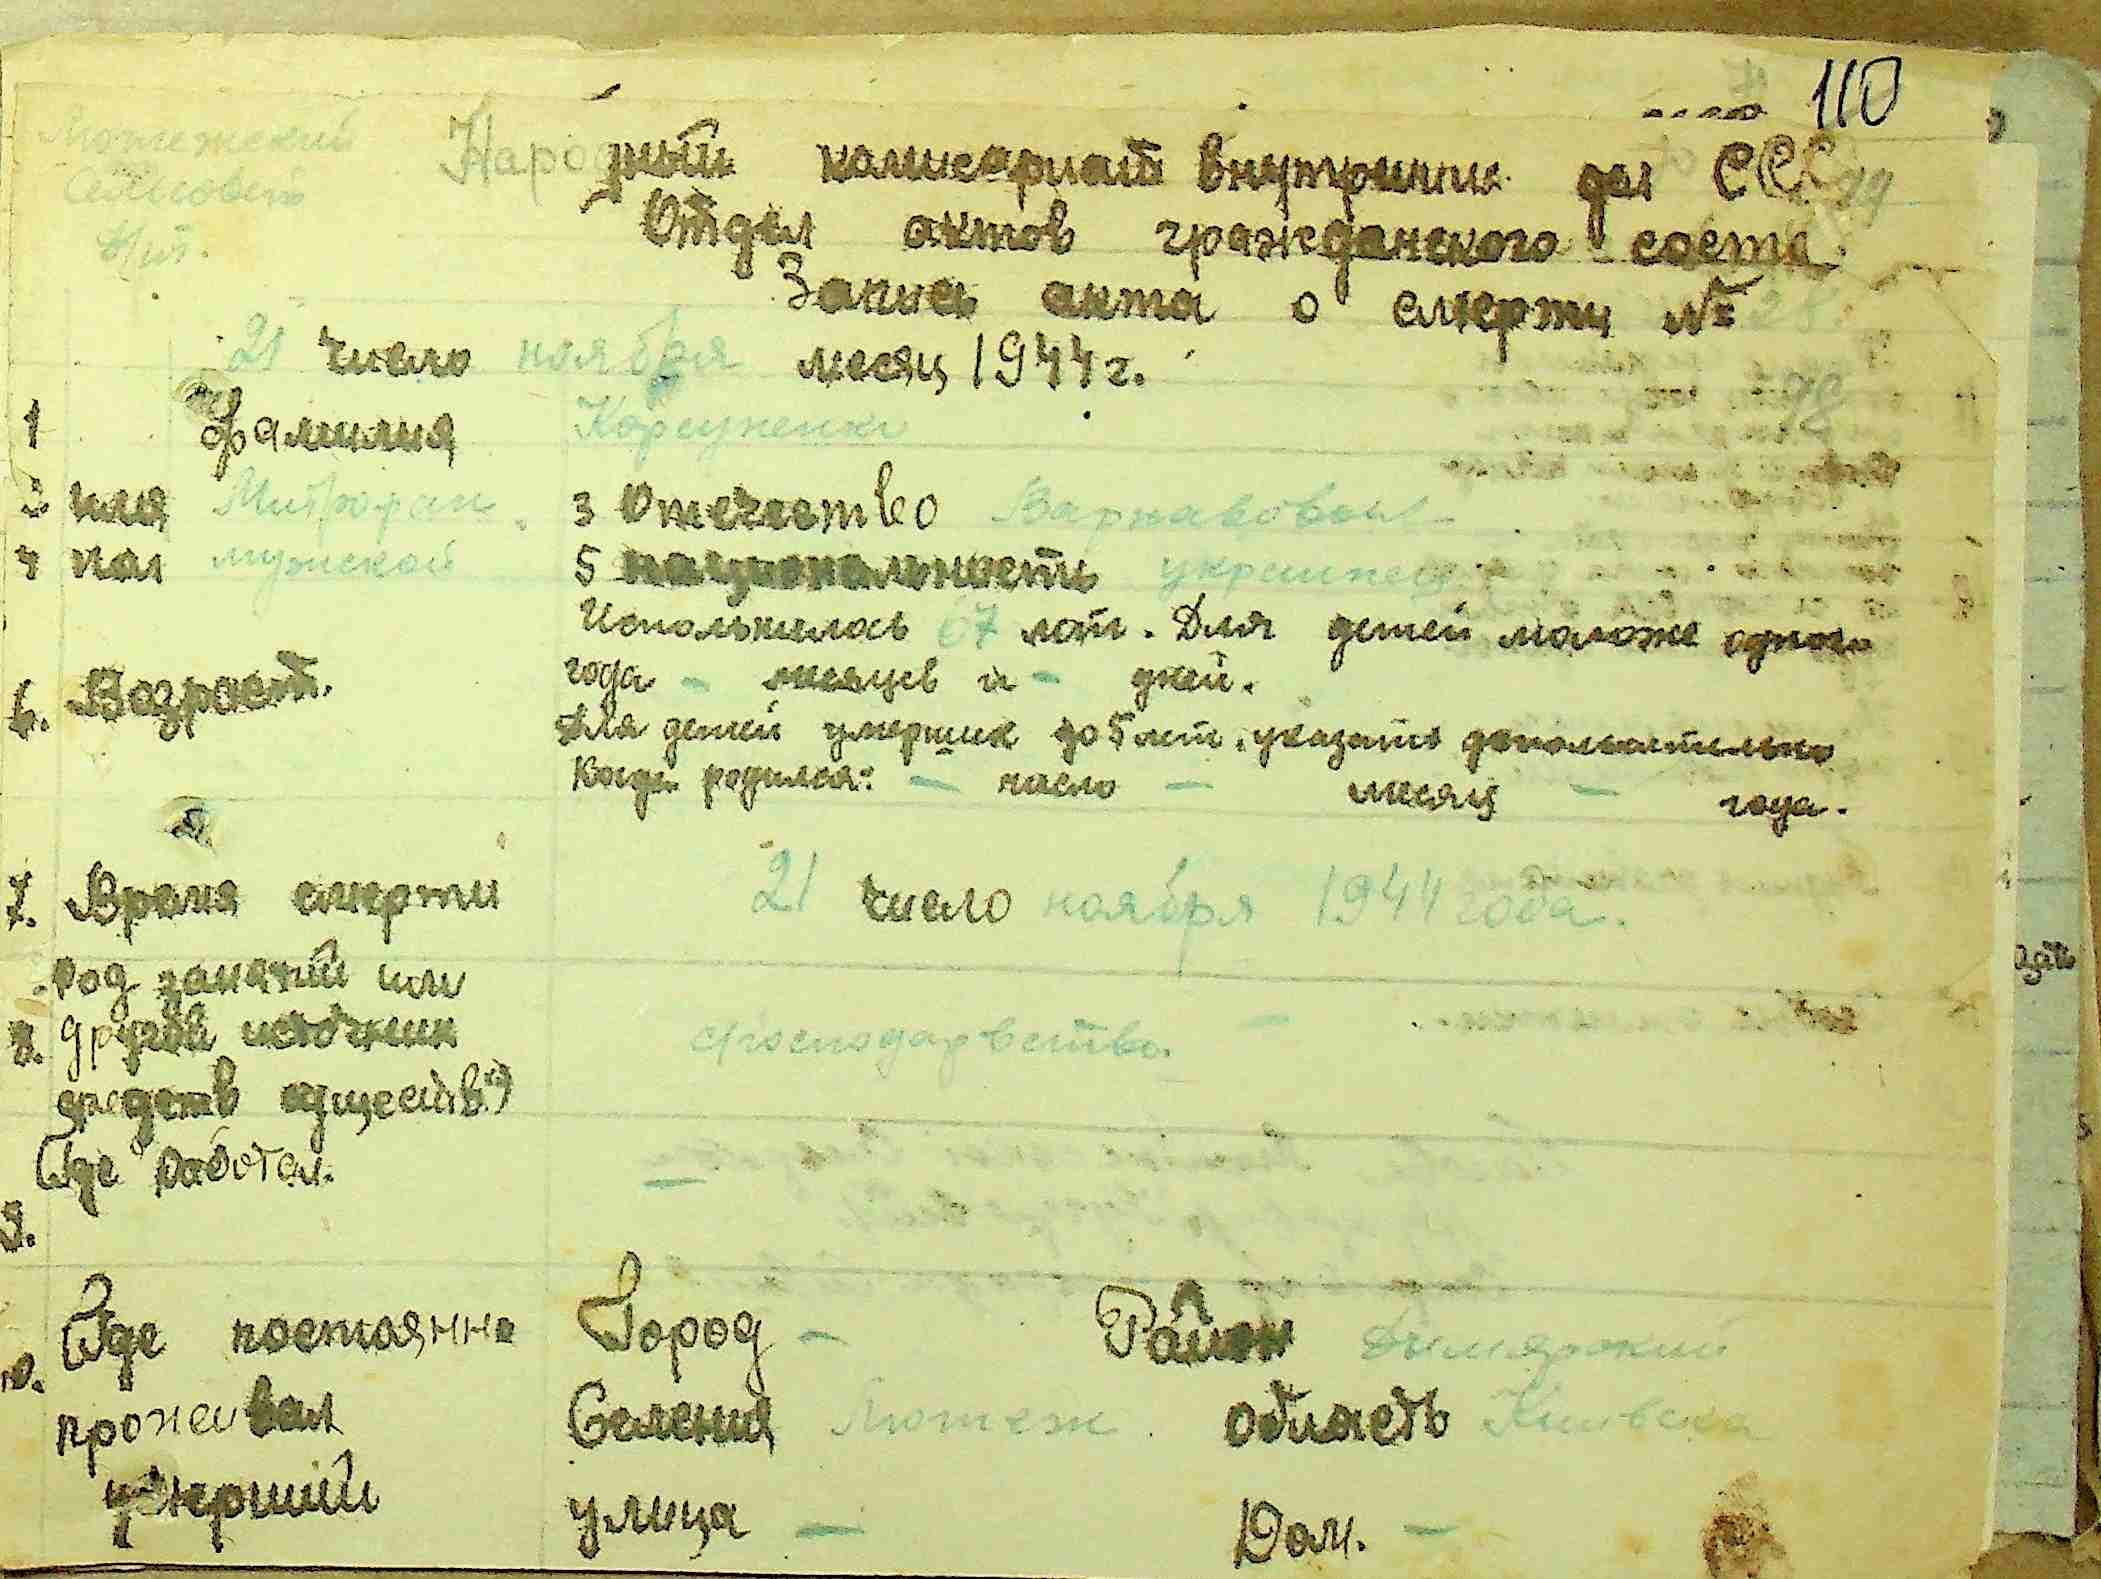 110
Народный комисариат внутрених дел СССР
Отдел актов гражданского состa
Запись акта о смерти № 28.
21 число ноября месяц 1944 г.
1 фамилия
2 имя Митрофан 3 Отечество Варнавовы
4 пол мужской 5 национальность украинец
Исполнилось 67 лет. Для детей моложе одного
6. Возраст. года - месяцев и - дней.
Для детей умерших до 5 лет, указать дополнительно
Когда родился: - число - месяц - года.
7. Время смерти 21 число ноября 1944 года.
Род занятий или
8. другой источник господарвство.
средств
Где работал. -
9.
10. Где постоянно Город - Район Дымярский
проживал Селения Лютеж область Киивска
умерший улица - Дом. -